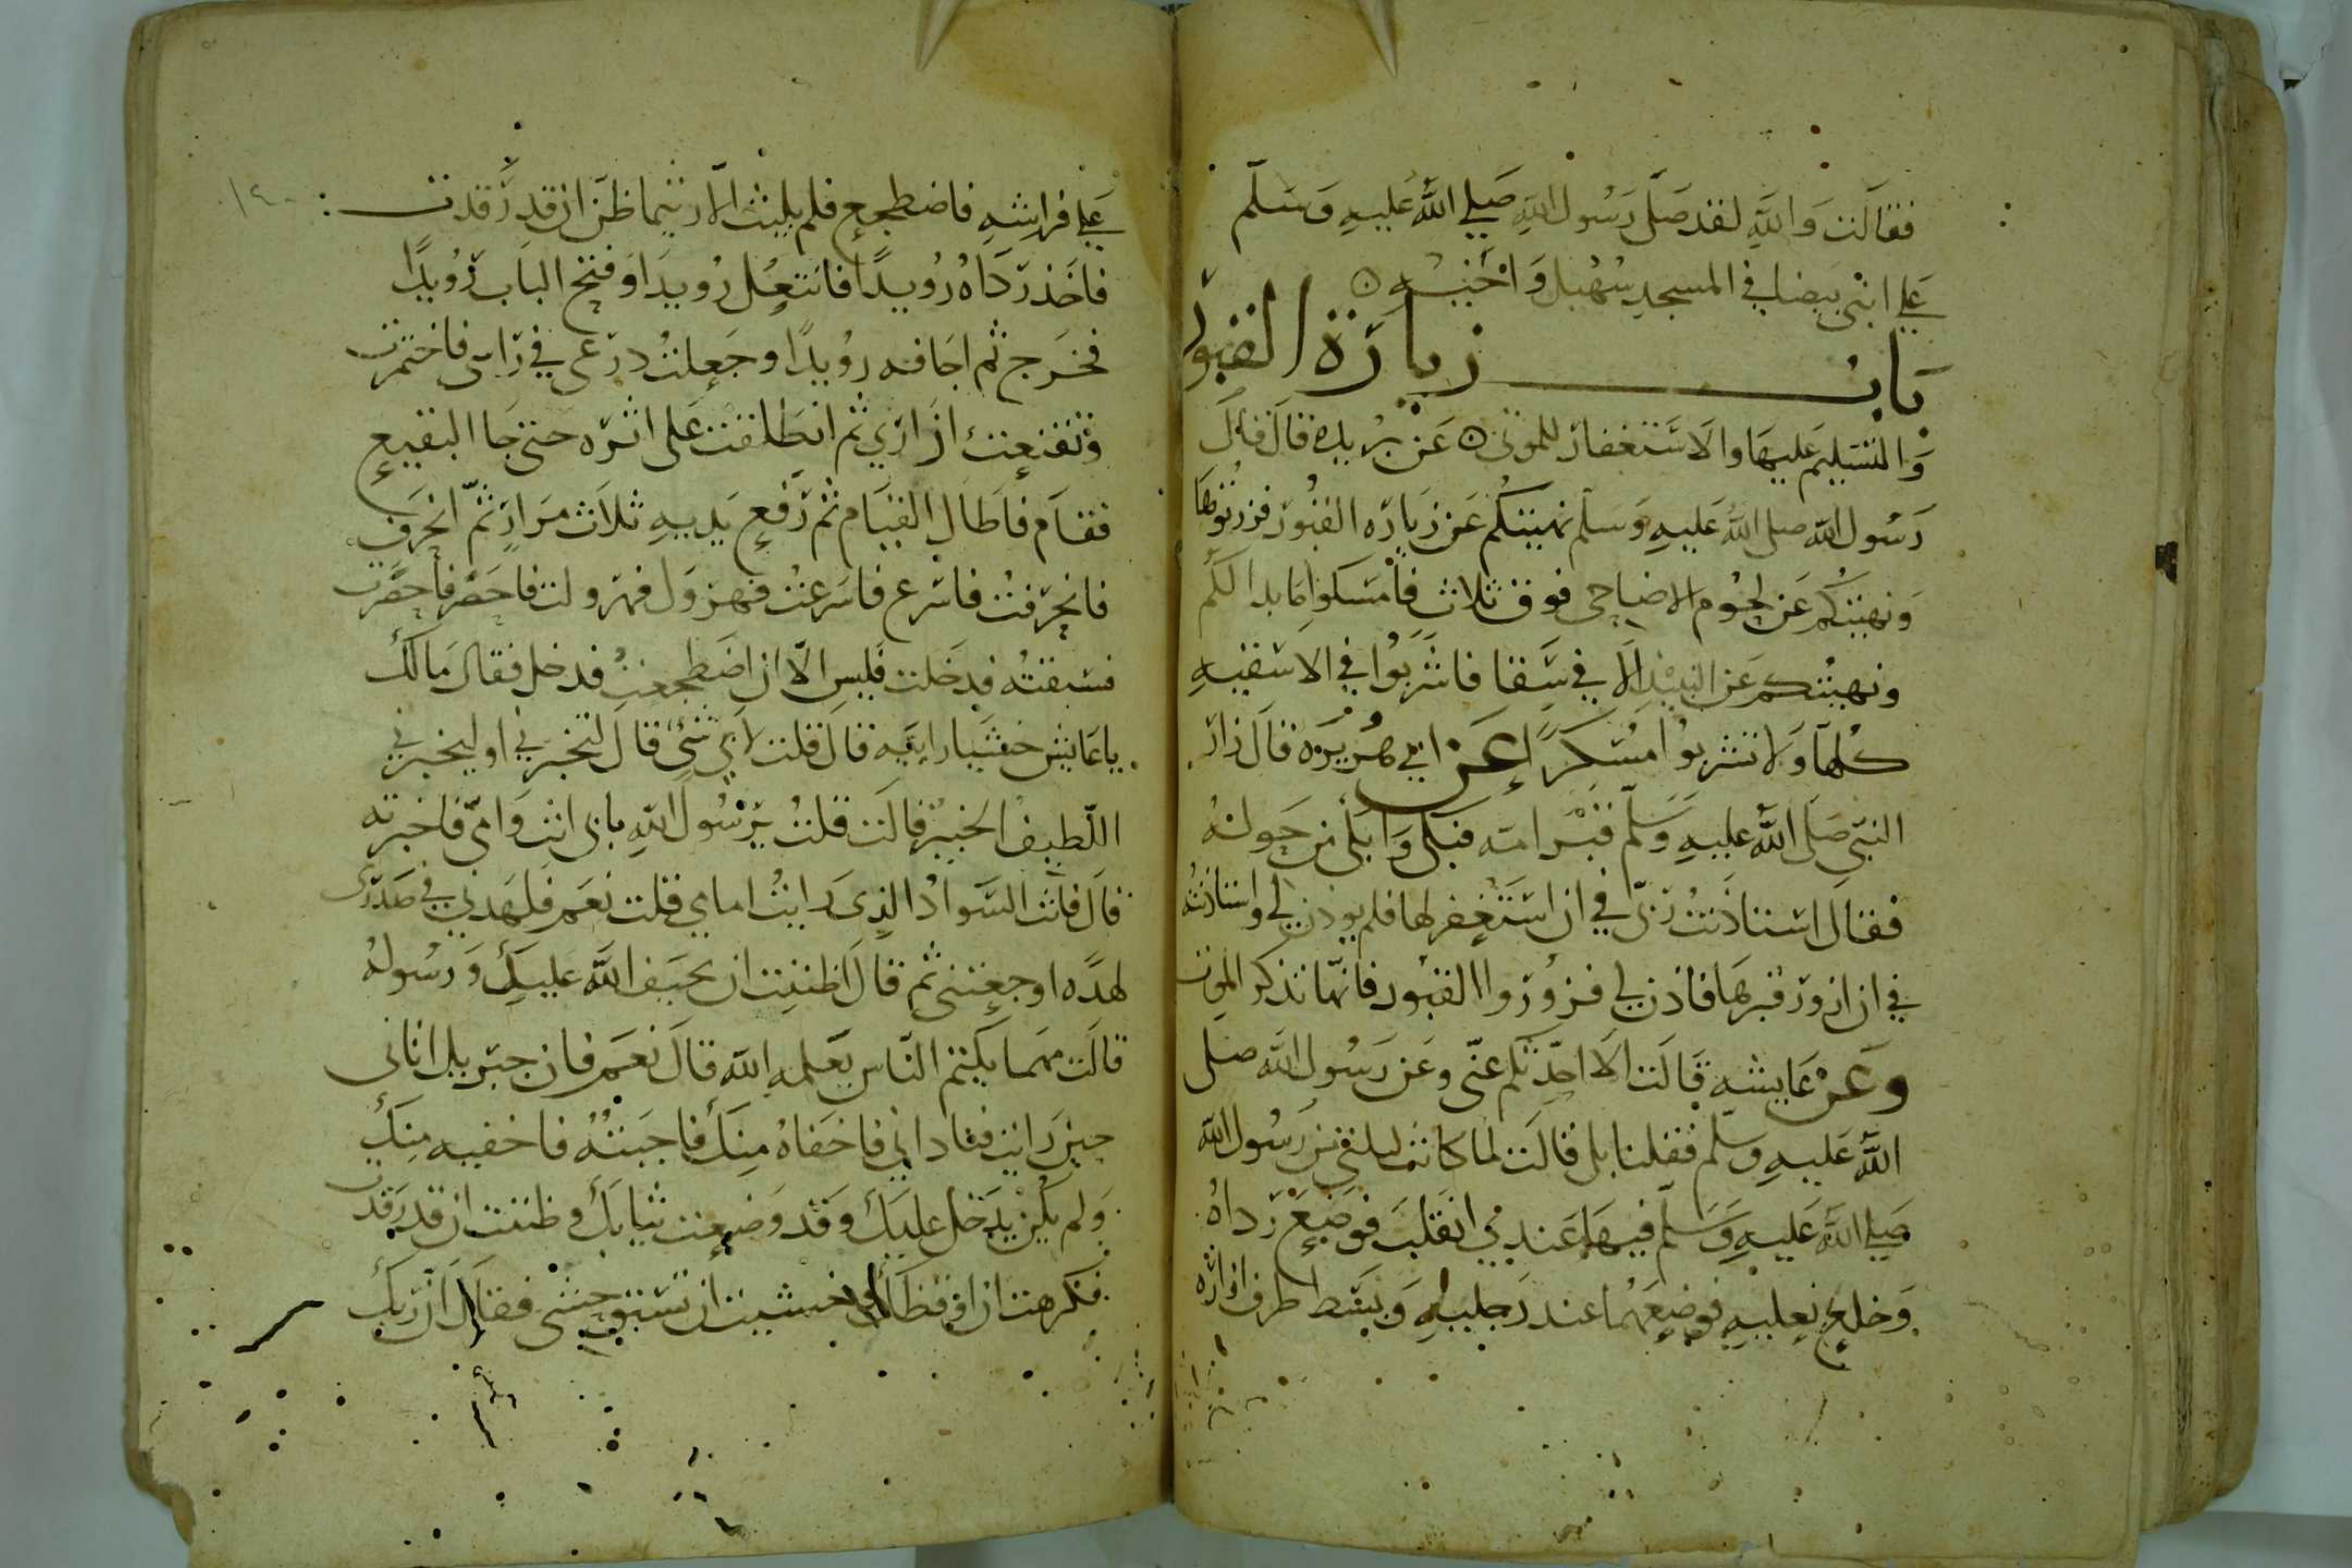 فقالت والله لقد صلى رسول الله صلى الله عليه وسلم
على ابنى بيضا فى المسجد سهيل واخيه ه
باب زيارة القبور
والتسليم عليها والاستغفار للموتى ه عن بريدة قال قال
رسول الله صلى الله عليه وسلم نهيتكم عن زيارة القبور فزوروها
ونهيتكم عن لحوم الاضاحى فوق ثلاث فامسكوا ما بدا لكم
ونهيتكم عن النبيذ الا فى سقا فاشربوا فى الاسقيه
كلها ولا تشربوا مسكرا عن ابى هريرة قال زار
النبى صلى الله عليه وسلم قبر امه فبكى وابكى من حوله
فقال استاذنت ربى فى ان استغفر لها فلم يوذن لى واستاذنته
فى ان ازور قبرها فاذن لى فزوروا القبور فانها تذكر الموت
وعن عايشه قالت الا احدثكم عنى وعن رسول الله صلى
الله عليه وسلم فقلنا بلى قالت لما كانت ليلتى من رسول الله
صلى الله عليه وسلم فيها عندى انقلب فوضع رداه
وخلع نعليه فوضعهما عند رجليه وبسط طرف ازاره
١٤٠
على فراشه فاضطجع فلم يلبث الا ريثما ظن ان قد رقدت
فاخذ رداه رويدا فانتعل رويدا وفتح الباب رويدا
فخرج ثم اجافه رويدا وجعلت درعى فى راسى فاختمرت
وتقنعت ازارى ثم انطلقت على اثره حتى جا البقيع
فقام فاطال القيام ثم رفع يديه ثلاث مرار ثم انحرف
فانحرفت فاسرع فاسرعت فهرول فهرولت فاحضر فاحضرت
فسبقته فدخلت فليس الا ان اضطجعت فدخل فقال مالك
يا عايش حشيا رابيه قال قلت لاى شى قال لتخبرنى او ليخبرنى
اللطيف الخبير قالت قلت يرسول الله بابى انت وامى فاخبرته
قال فانت السواد الذى رايت امامى قلت نعم فلهدنى فى صدرى
لهده اوجعتنى ثم قال اظننت ان يحيف الله عليك ورسوله
قالت مهما يكتم الناس يعلمه الله قال نعم فان جبريل اتانى
حين رايت فنادانى فاخفاه منك فاجبته فاخفيه منك
ولم يكن يدخل عليك وقد وضعت ثيابك وظننت ان قد رقدت
فكرهت ان اوقظك وخشيت ان تستوحشى فقال ان ربك